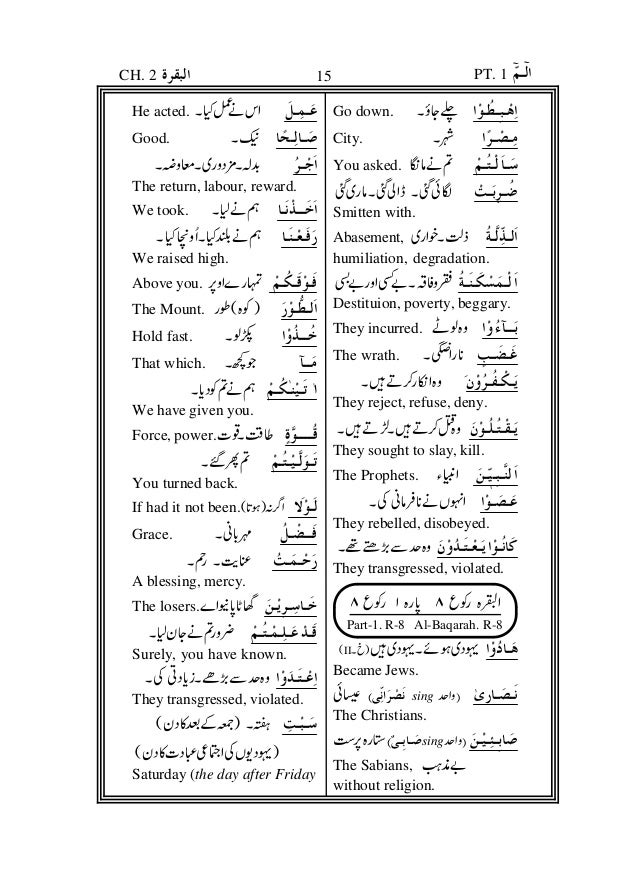 CH. 2 البقرة 15 PT. 1 الٓمّٓ
اِهْبِطُوْا چلے جاؤ۔ Go down.
مِصْرًا شہر۔ City.
سَاَلْتُمْ تم نے مانگا You asked.
ضُرِبَتْ لگائی گئی۔ ڈالی گئی۔ ماری گئی
Smitten with.
اَلذِّلَّةُ ذلت۔خواری Abasement,
humiliation, degradation.
اَلْمَسْكَنَةُ فقروفاقہ۔ بے کسی اور بے بسی
Destituion, poverty, beggary.
بَآءُوْا وہ لوٹے They incurred.
غَضَبٍ ناراضگی۔ The wrath.
يَكْفُرُوْنَ وہ انکار کرتے ہیں۔
They reject, refuse, deny.
يَقْتُلُوْنَ وہ قتل کرتے ہیں۔لڑتے ہیں۔
They sought to slay, kill.
اَلنَّبِيّٖنَ انبیاء The Prophets.
عَصَوْا انہوں نے نافرمانی کی۔
They rebelled, disobeyed.
كَانُوْا يَعْتَدُوْنَ وہ حد سے بڑھتے تھے۔
They transgressed, violated.
البقرہ رکوع ۸ پارہ ۱ رکوع ۸
Part-1. R-8 Al-Baqarah. R-8
هَادُوْا یہودی ہوئے۔یہودی ہیں (خ-II)
Became Jews.
نَصَارىٰ (واحد sing نَصْرَانِیّ) عیسائی
The Christians.
صَابِئِيْنَ (واحدsing صَابِیٔ) ستارہ پرست
The Sabians, بے مذہب
without religion.
عَمِلَ اس نے عمل کیا۔ He acted.
صَالِحًا نیک۔ Good.
اَجْرُ بدلہ۔مزدوری۔معاوضہ۔
The return, labour, reward.
اَخَذْنَا ہم نے لیا۔ We took.
رَفَعْنَا ہم نے بلند کیا۔اُونچا کیا۔
We raised high.
فَوْقَكُمْ تمہارے اوپر Above you.
اَلطُّوْرَ (کوہ) طور The Mount.
خُذُوْا پکڑلو۔ Hold fast.
مَآ جو کچھ۔ That which.
اٰتَيْنٰكُمْ ہم نے تم کو دیا۔
We have given you.
قُوَّةٍ طاقت۔قوت۔ Force, power.
تَوَلَّيْتُمْ تم پھر گئے۔
You turned back.
لَوْلَا اگر نہ (ہوتا)۔ If had it not been.
فَضْلُ مہربانی۔ Grace.
رَحْمَتُ عنایت۔ رحم۔
A blessing, mercy.
خَاسِرِيْنَ گھاٹا پانیوالے The losers.
قَدْ عَلِمْتُمْ ضرور تم نے جان لیا۔
Surely, you have known.
اِعْتَدَوْا وہ حد سے بڑھے۔زیادتی کی۔
They transgressed, violated.
سَبْتِ ہفتہ۔ (جمعہ کے بعد کا دن)
(یہودیوں کی اجتماعی عبادت کا دن)
Saturday (the day after Friday